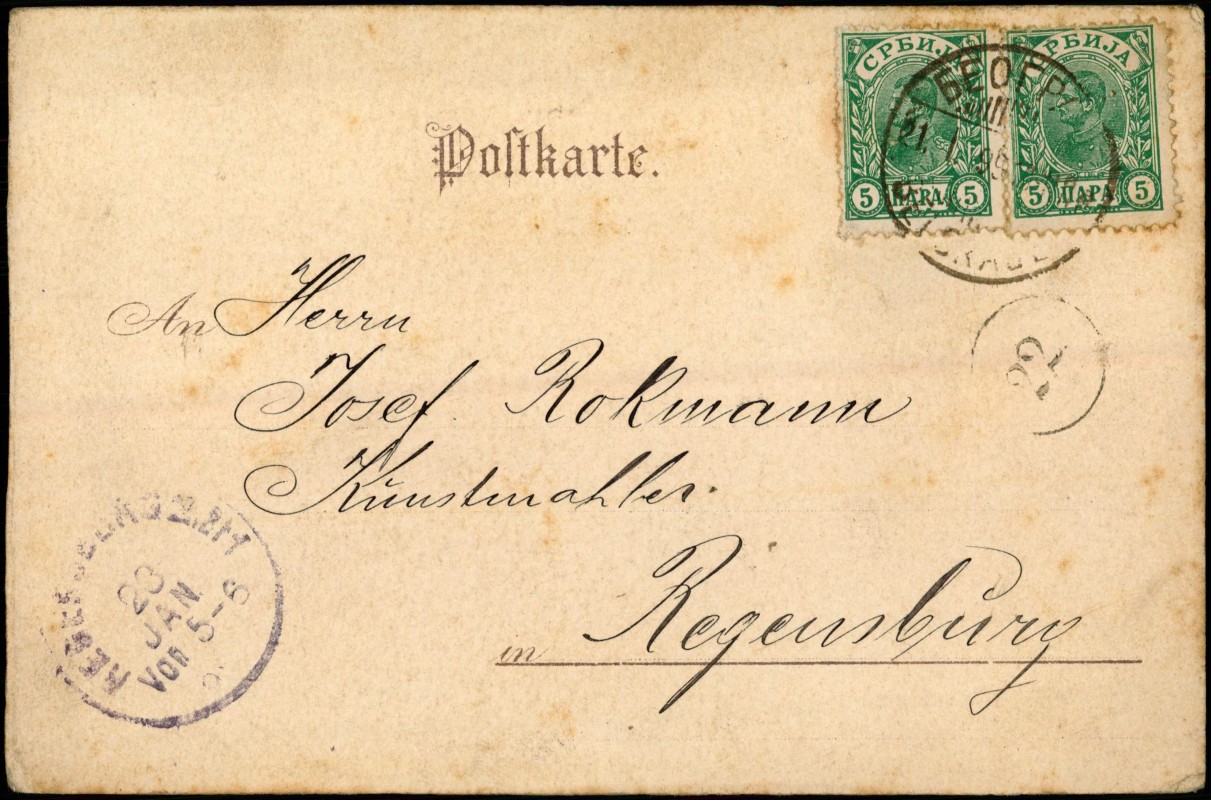 СРБИЈА
5 ПАРА 5
СРБИЈА
5 ПАРА 5
БЕОГР
21 I
Postkarte.
An Herrn
Josef Rokmann
Kunstmahler.
in Regensburg
22
REGENSBURG 2.BM
23
JAN
Von 5-6